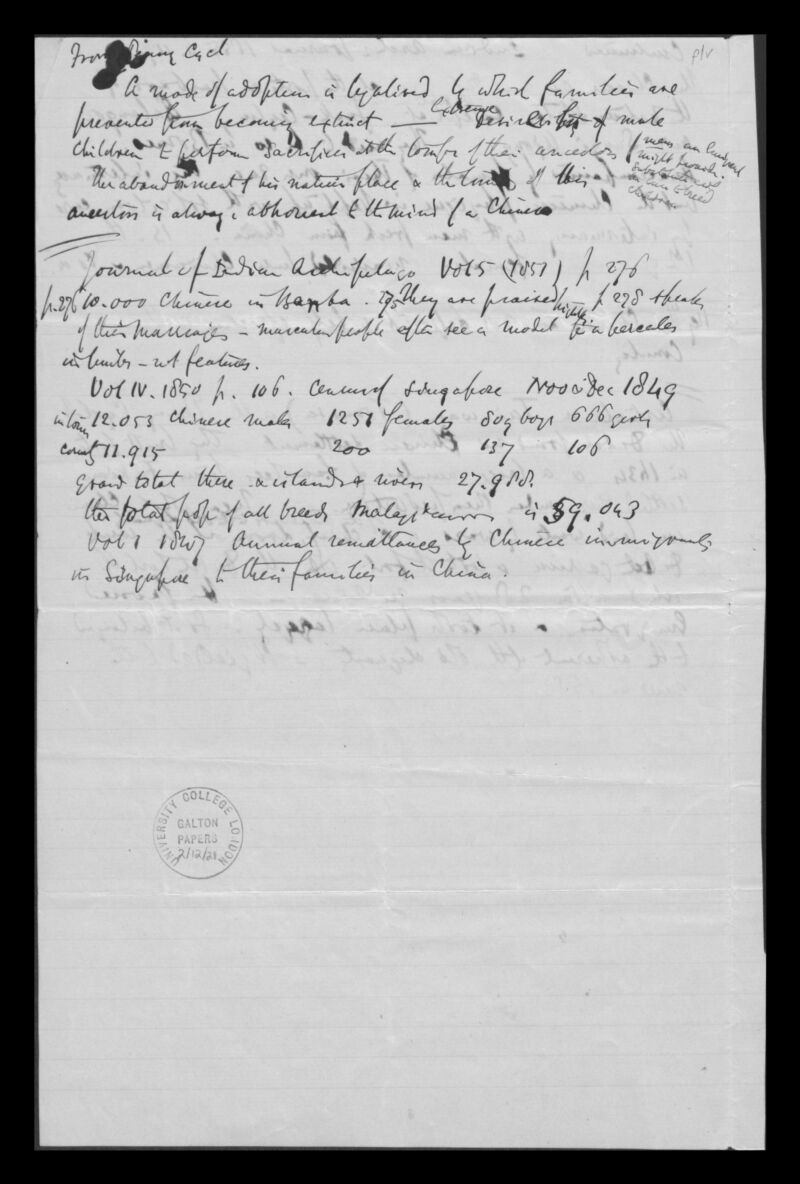 p/v
From Penny Cycl
A mode of adoption is legalised by which families are
prevented from becoming extinct — Extreme desirability of male
children to perform sacrifices at the tombs of their ancestors
means an emigrant
might provide
children
The abandonment of his native place & the tombs of his
ancestors is always abhorrent to the mind of a Chinese
Journal of Indian Archipelago Vol 5 (1851) p 276
p.276 10.000 Chinese in . They are praised highly p 278 speaks
of their marriages – muscular people often see a model for a hercules
in limbs – not features.
Vol IV. 1850 p. 106. Census of Singapore Nov & Dec 1849
in town 12.053 Chinese males 1251 females 809 boys 666 girls
country 11.915 200 137 106
grand total there & islands & rivers 27.988.
the total pop of all breeds Malays is 59.043
Vol 1 1847 Annual remittances by Chinese immigrants
in Singapore to their families in China.
UNIVERSITY COLLEGE LONDON
GALTON
PAPERS
2/12/21